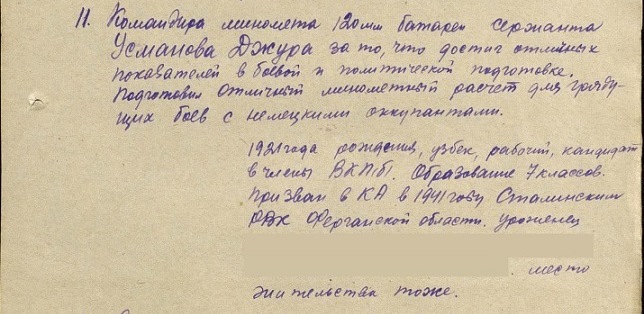 11. Командира миномета 120мм батареи сержанта
Усманова Джура за то, что достиг отличных
показателей в боевой и политической подготовке.
Подготовил отличный минометный расчет для гряду-
щих боев с немецкими оккупантами.
1921 года рождения, узбек, рабочий, кандидат
в члены ВКП/б/. Образование 7 классов.
Призван в КА в 1941 году Сталинским
РВК Ферганской области. уроженец
. место
жительства тоже.